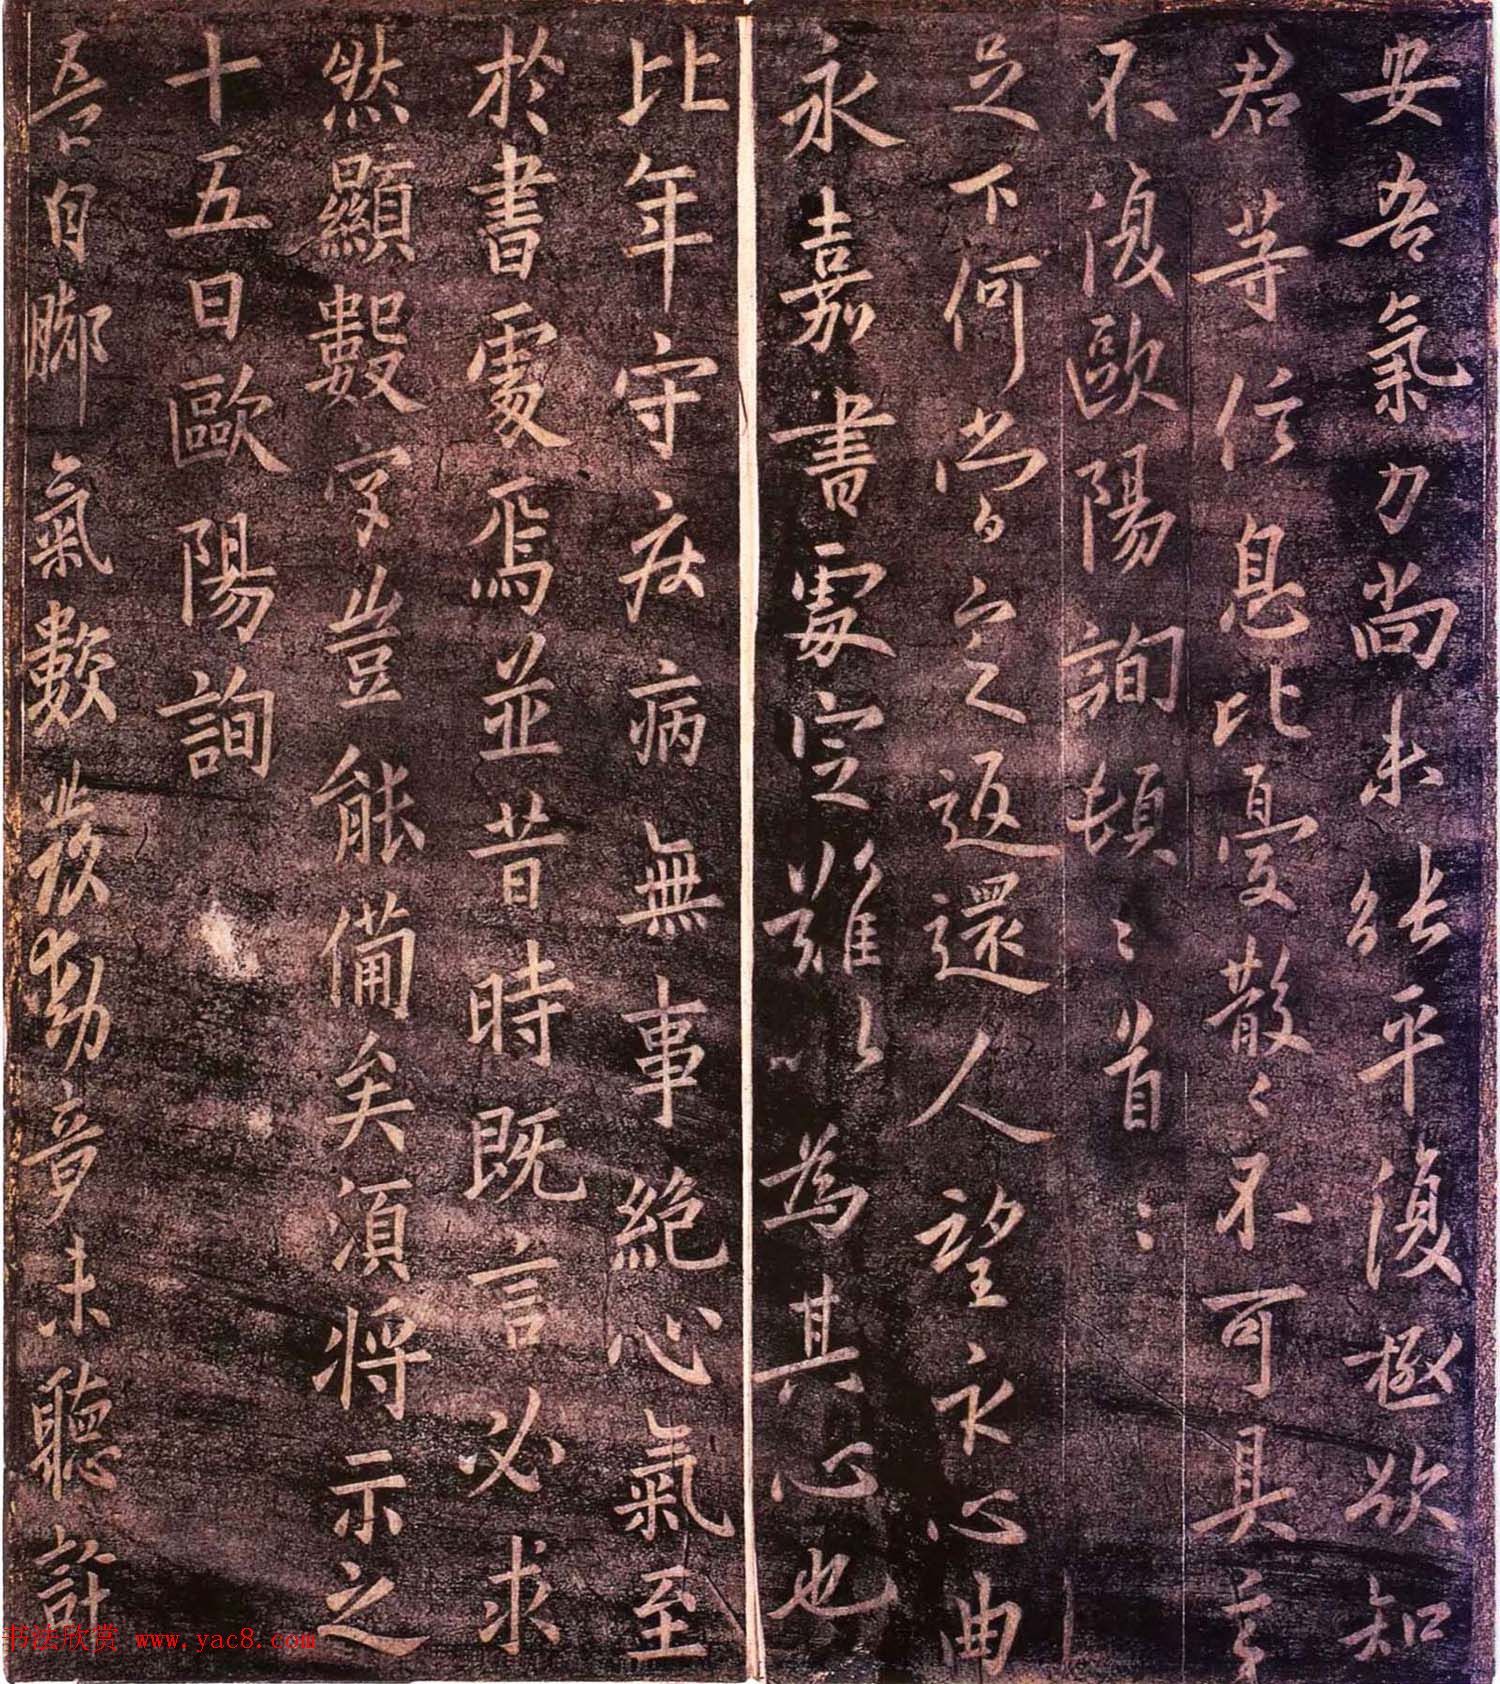 安吾氣力尚未能平復極欲知
君等信息比憂散〻不可具言
不復歐陽詢頓〻首〻
足下何當定返還人望永心曲
永嘉書處定難以為其心也
比年守疾病無事絶心氣至
於書處焉並昔時既言必求
然顯數字豈能備矣須將示之
十五日歐陽詢
吾自腳氣數發動竟未聽許
书法欣赏 www.yac8.com